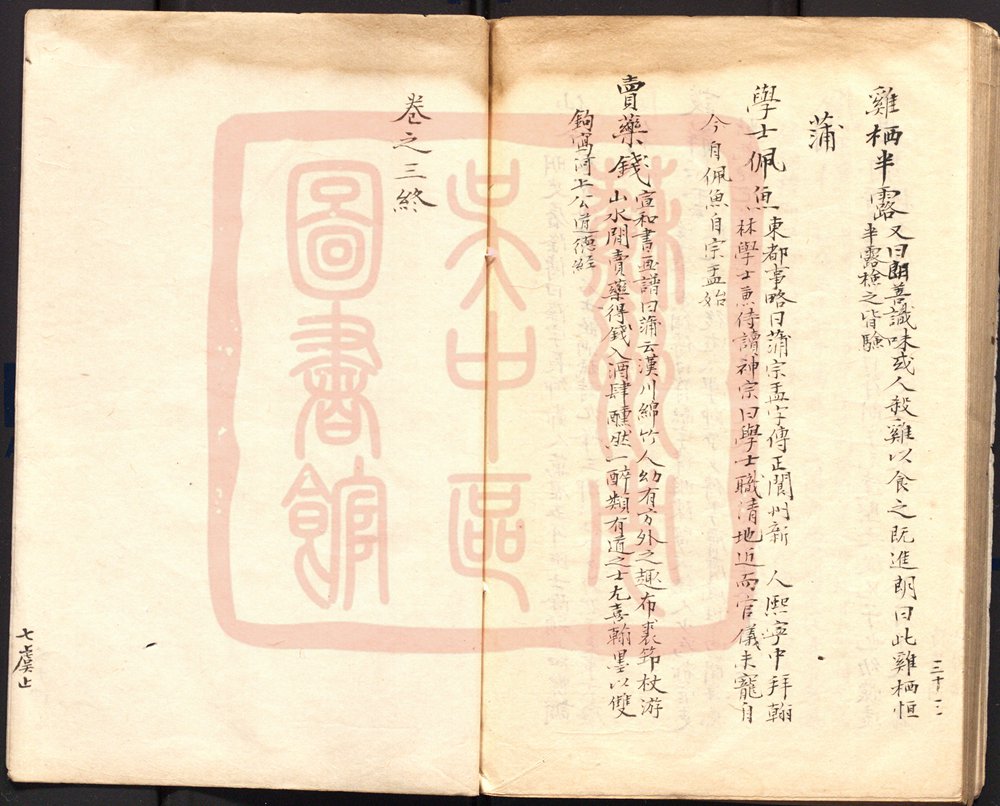 雞栖半露又曰朗善識味或人殺雞以食之既進朗曰此雞栖恒
半露檢之皆驗
蒲
學士佩魚東都事略曰蒲宗孟字傳正閬州新 人熙寧中拜翰
林學士兼侍讀神宗曰學士職清地近而官儀未寵自
今自佩魚自宗孟始
賣藥錢宣和書畫譜曰蒲云漢川綿竹人幼有方外之趣布裘筇杖游
山水間賣藥得錢入酒肆醺然一醉類有道之士尤喜翰墨以雙
鉤寫河上公道德經
卷之三終
三十
七虞止
圖書館
中區